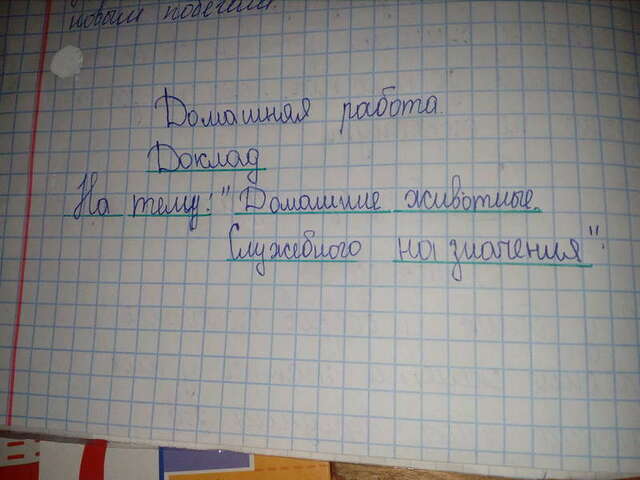 новым побегам.
Домашная работа.
Доклад
На тему: "Домашние животные.
Служебного назначения".